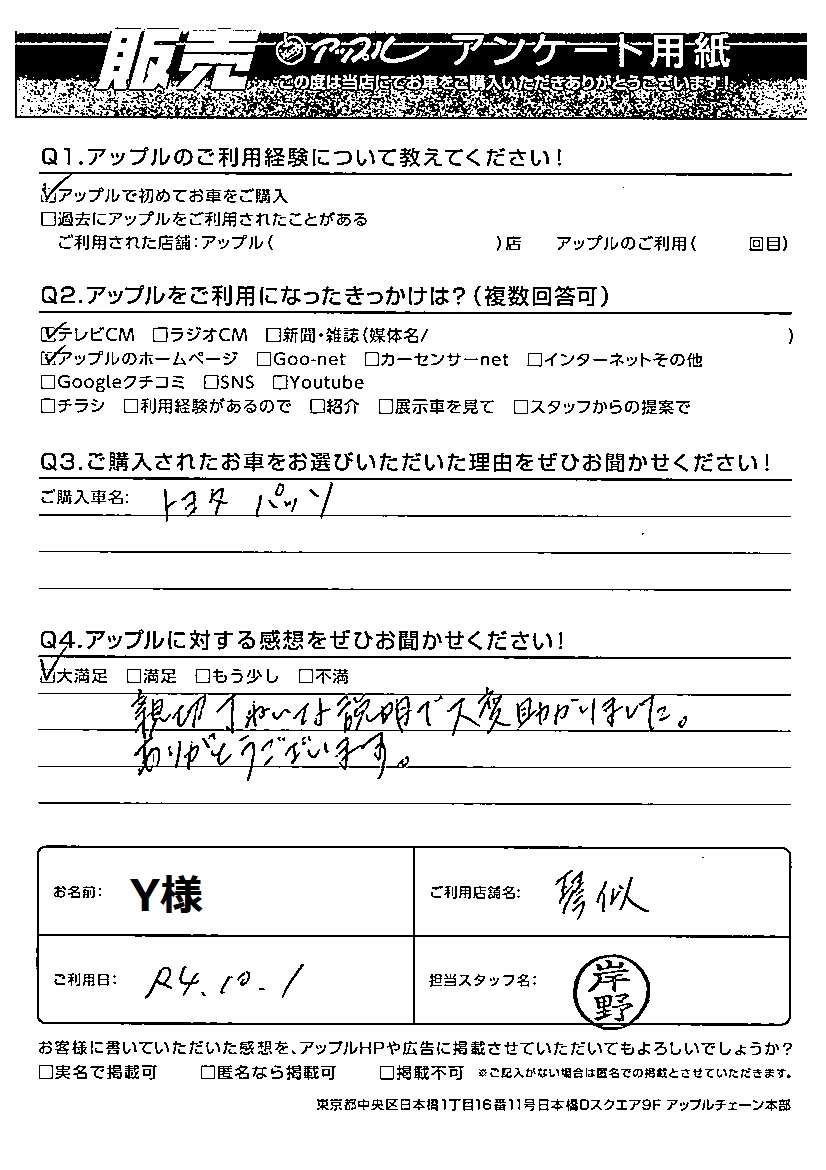 販売 アップル アンケート用紙
この度は当店にてお車をご購入いただきありがとうございます!
Q1.アップルのご利用経験について教えてください!
☑アップルで初めてお車をご購入
□過去にアップルをご利用されたことがある
ご利用された店舗:アップル( )店 アップルのご利用( 回目)
Q2.アップルをご利用になったきっかけは?(複数回答可)
☑テレビCM □ラジオCM □新聞・雑誌(媒体名/ )
☑アップルのホームページ □Goo-net □カーセンサーnet □インターネットその他
□Googleクチコミ □SNS □Youtube
□チラシ □利用経験があるので □紹介 □展示車を見て □スタッフからの提案で
Q3.ご購入されたお車をお選びいただいた理由をぜひお聞かせください!
ご購入車名: トヨタ パッソ
Q4.アップルに対する感想をぜひお聞かせください!
☑大満足 □満足 □もう少し □不満
親切ていねいな説明で大変助かりました。
ありがとうございます。
お名前: Y様 ご利用店舗名: 琴似
ご利用日: R4.10.1 担当スタッフ名: 岸野
お客様に書いていただいた感想を、アップルHPや広告に掲載させていただいてもよろしいでしょうか?
□実名で掲載可 □匿名なら掲載可 □掲載不可 ※ご記入がない場合は匿名での掲載とさせていただきます。
東京都中央区日本橋1丁目16番11号日本橋Dスクエア9F アップルチェーン本部